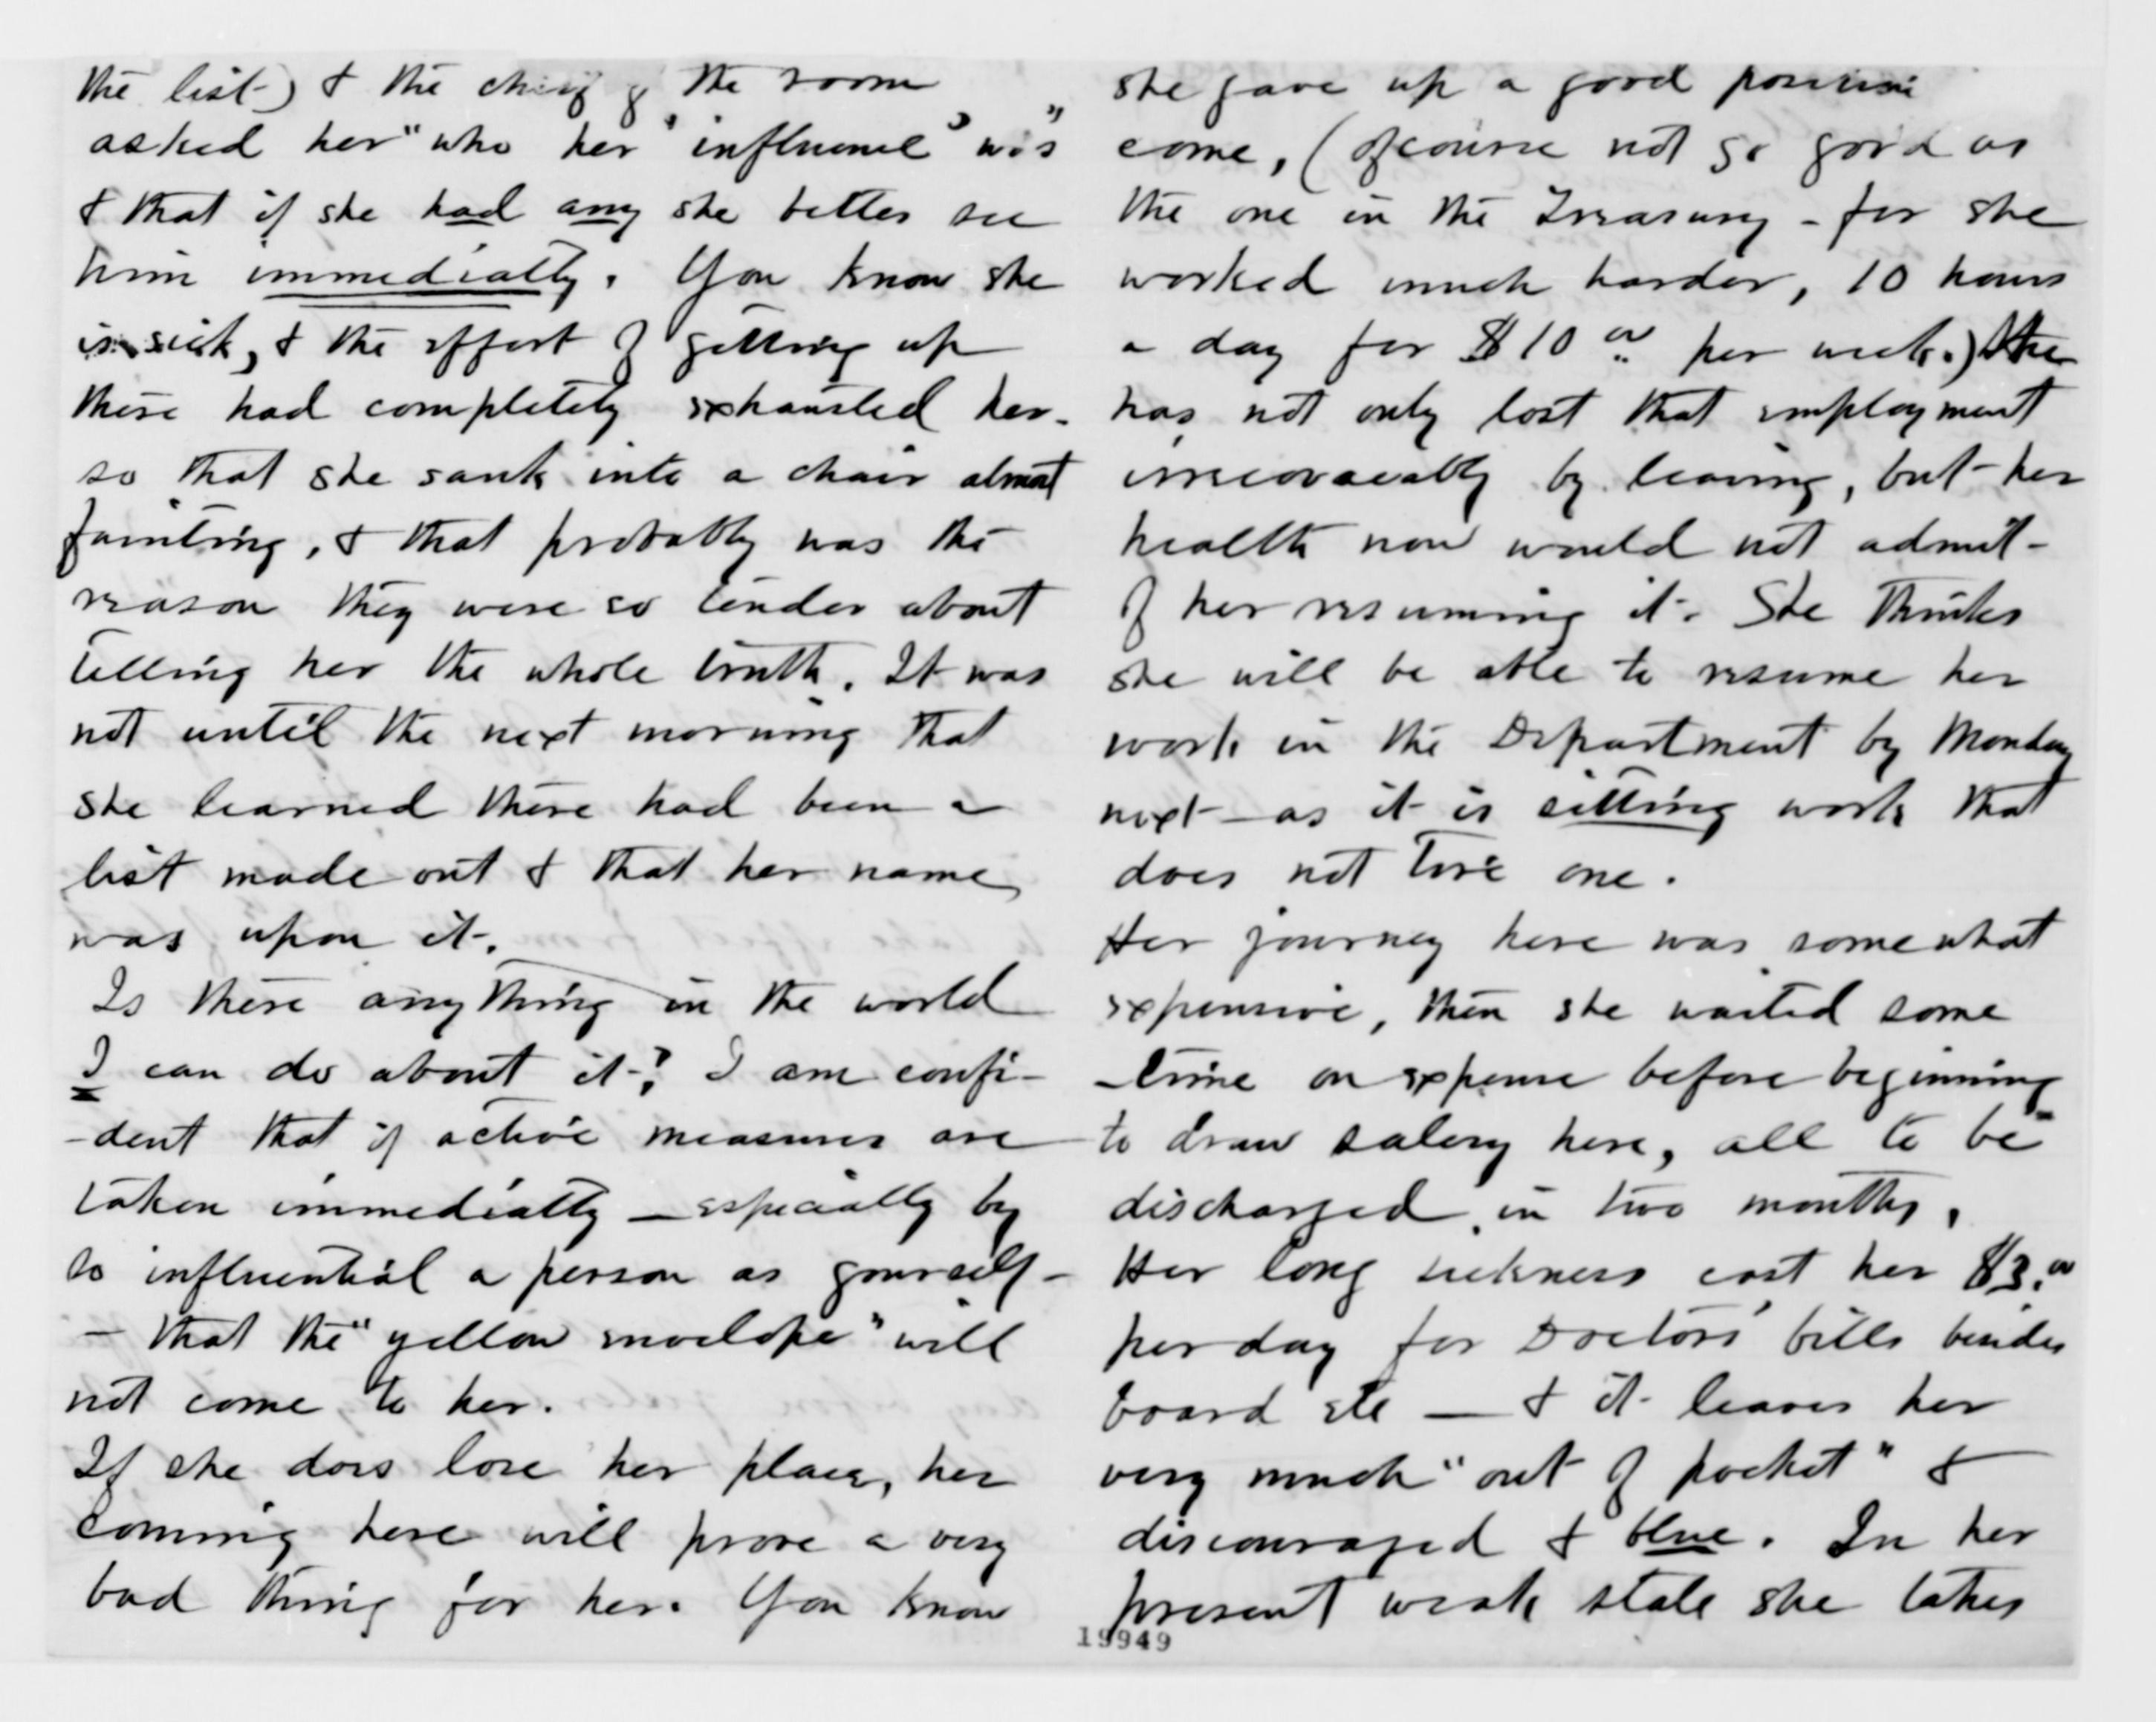 the list) & the chief of the room
asked her "who her "influence" was"
& that if she had any she better see
him immediatly. You know she
is sick, & the effort of getting up
there had completely exhausted her.
so that she sank into a chair almost
fainting, & that probably was the
reason they were so tender about
telling her the whole truth. It was
not until the next morning that
she learned there had been a
list made out & that her name
was upon it.
Is there anything in the world
I can do about it? I am confi-
-dent that if active measures are
taken immediatly — especially by
so influential a person as yourself -
- that the "yellow envelope" will
not come to her.
If she does lose her place, her
coming here will prove a very
bad thing for her. You know
she gave up a good position
come, (of course not so good as
the one in the Treasury - for she
worked much harder, 10 hours
a day for $10 00 per week.) She
has not only lost that employment
irrecovocably by leaving, but her
health now would not admit
of her resuming it. She thinks
she will be able to resume her
work in the Department by Monday
next — as it is sitting work that
does not tire one.
Her journey here was somewhat
expensive, then she waited some
-time on expense before beginning
to draw salery here, all to be
discharged in two months.
Her long sickness cost her $3.00
per day for Doctors' bills besides
board etc — & it leaves her
very much "out of pocket" &
discouraged & blue. In her
present weak state she takes
19949